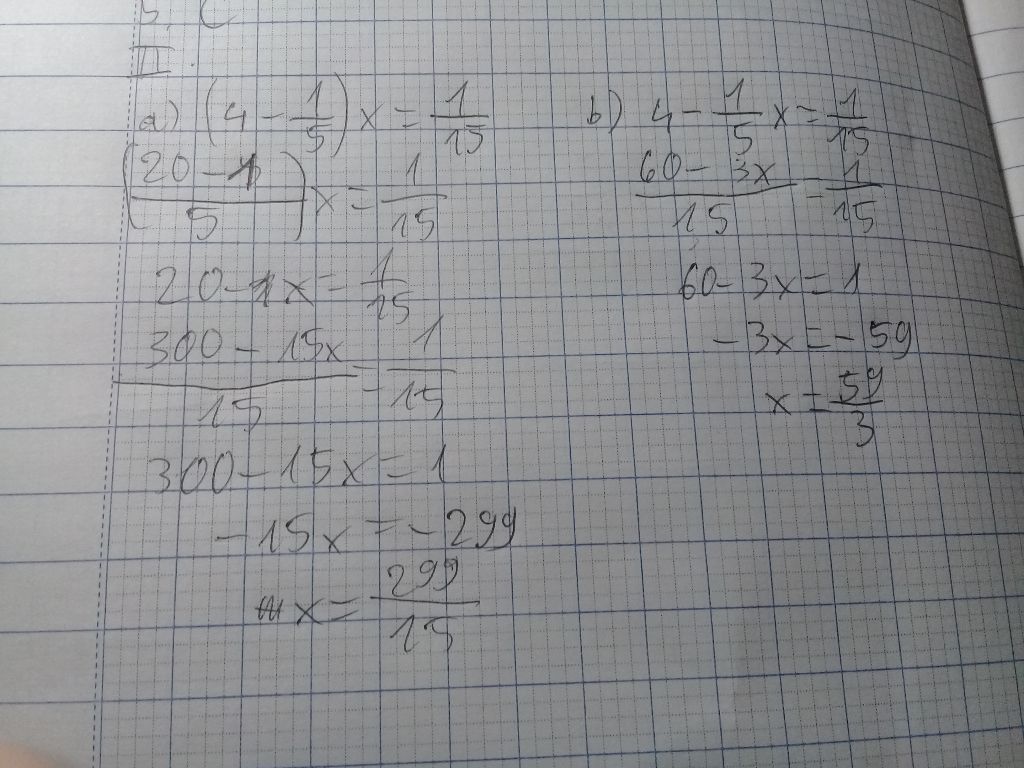 5. C
II.
a) (4 - 1/5)x = 1/15
((20 - 1)/5)x = 1/15
20 - 1x = 1/15
(300 - 15x)/15 = 1/15
300 - 15x = 1
-15x = -299
x = 299/15
b) 4 - 1/5 x = 1/15
(60 - 3x)/15 = 1/15
60 - 3x = 1
-3x = -59
x = 59/3